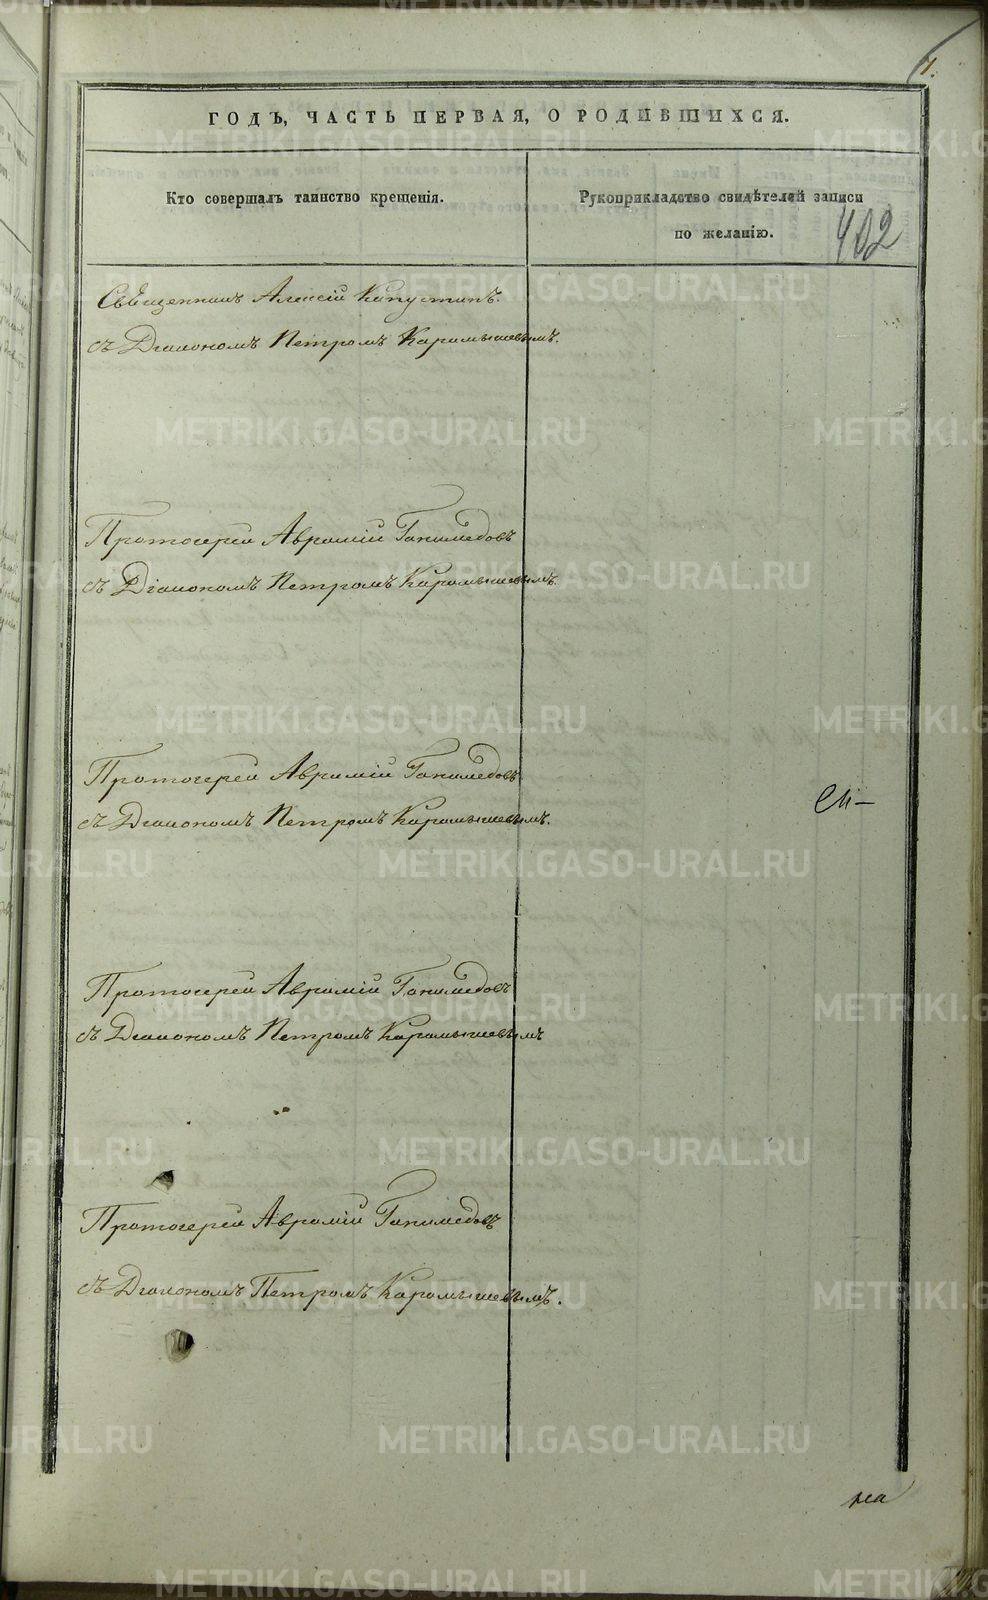 7.
ГОДЪ, ЧАСТЬ ПЕРВАЯ, О РОДИВШИХСЯ.
Кто совершалъ таинство крещенія.
Рукоприкладство свидѣтелей записи
по желанію.
402
Священникъ Алексій Капустинъ.
съ Діакономъ Петромъ Карамышевымъ.
Протоіерей Аврамій Ганимедовъ
съ Діакономъ Петромъ Карамышевымъ.
Протоіерей Аврамій Ганимедовъ
съ Діакономъ Петромъ Карамышевымъ.
Протоіерей Аврамій Ганимедовъ
съ Діакономъ Петромъ Карамышевымъ
Протоіерей Аврамій Ганимедовъ
съ Діакономъ Петромъ Карамышевымъ.
METRIKI.GASO-URAL.RU